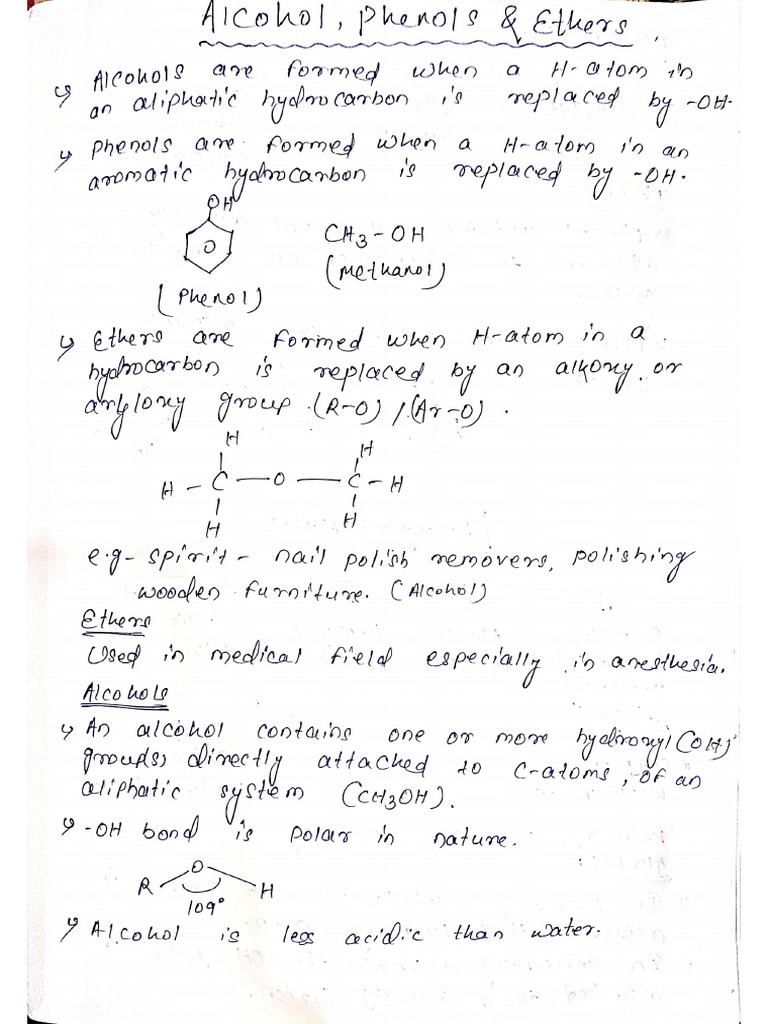 Alcohol, Phenols & Ethers
Alcohols are formed when a H-atom in
an aliphatic hydrocarbon is replaced by -OH.
Phenols are formed when a H-atom in an
aromatic hydrocarbon is replaced by -OH.
OH
CH3-OH
(Phenol)
(Methanol)
Ethers are formed when H-atom in a
hydrocarbon is replaced by an alkoxy or
aryloxy group (R-O) / (Ar-O).
H H
H - C — O — C - H
H H
e.g- spirit - nail polish removers, polishing
wooden furniture. (Alcohol)
Ethers
Used in medical field especially in anesthesia.
Alcohols
An alcohol contains one or more hydroxyl (OH)
group(s) directly attached to C-atoms, of an
aliphatic system (CH3OH).
-OH bond is polar in nature.
O
R H
109°
Alcohol is less acidic than water.